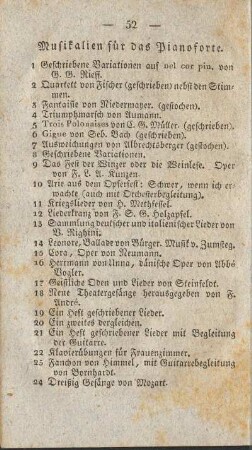 — 52 —
Musikalien für das Pianoforte.
1 Geschriebene Variationen auf nel cor piu, von
G. G. Rieff.
2 Quartett von Fischer (geschrieben) nebst den Stim-
men.
3 Fantaisie von Niedermayer. (gestochen).
4 Triumphmarsch von Aumann.
5 Trois Polonaises von C. G. Müller. (geschrieben).
6 Gigue von Seb. Bach (geschrieben).
7 Ausweichungen von Albrechtsberger (gestochen).
8 Geschriebene Variationen.
9 Das Fest der Winzer oder die Weinlese. Oper
von F. L. A. Kunzen.
10 Arie aus dem Opferfest: Schwer, wenn ich er-
wachte (auch mit Orchesterbegleitung).
11 Kriegslieder von H. Methfessel.
12 Liederkranz von F. S. G. Holzapfel.
13 Sammlung deutscher und italienischer Lieder von
V. Righini.
14 Leonore, Ballade von Bürger. Musik v. Zumsteg.
15 Cora, Oper von Neumann.
16 Herrmann von Unna, dänische Oper von Abbé
Vogler.
17 Geistliche Oden und Lieder von Steinfeldt.
18 Neue Theatergesänge herausgegeben von F.
André.
19 Ein Heft geschriebener Lieder.
20 Ein zweites dergleichen.
21 Ein Heft geschriebener Lieder mit Begleitung
der Guitarre.
22 Klavierübungen für Frauenzimmer.
25 Fanchon von Himmel, mit Guitarrebegleitung
von Bornhardt.
24 Dreißig Gesänge von Mozart.